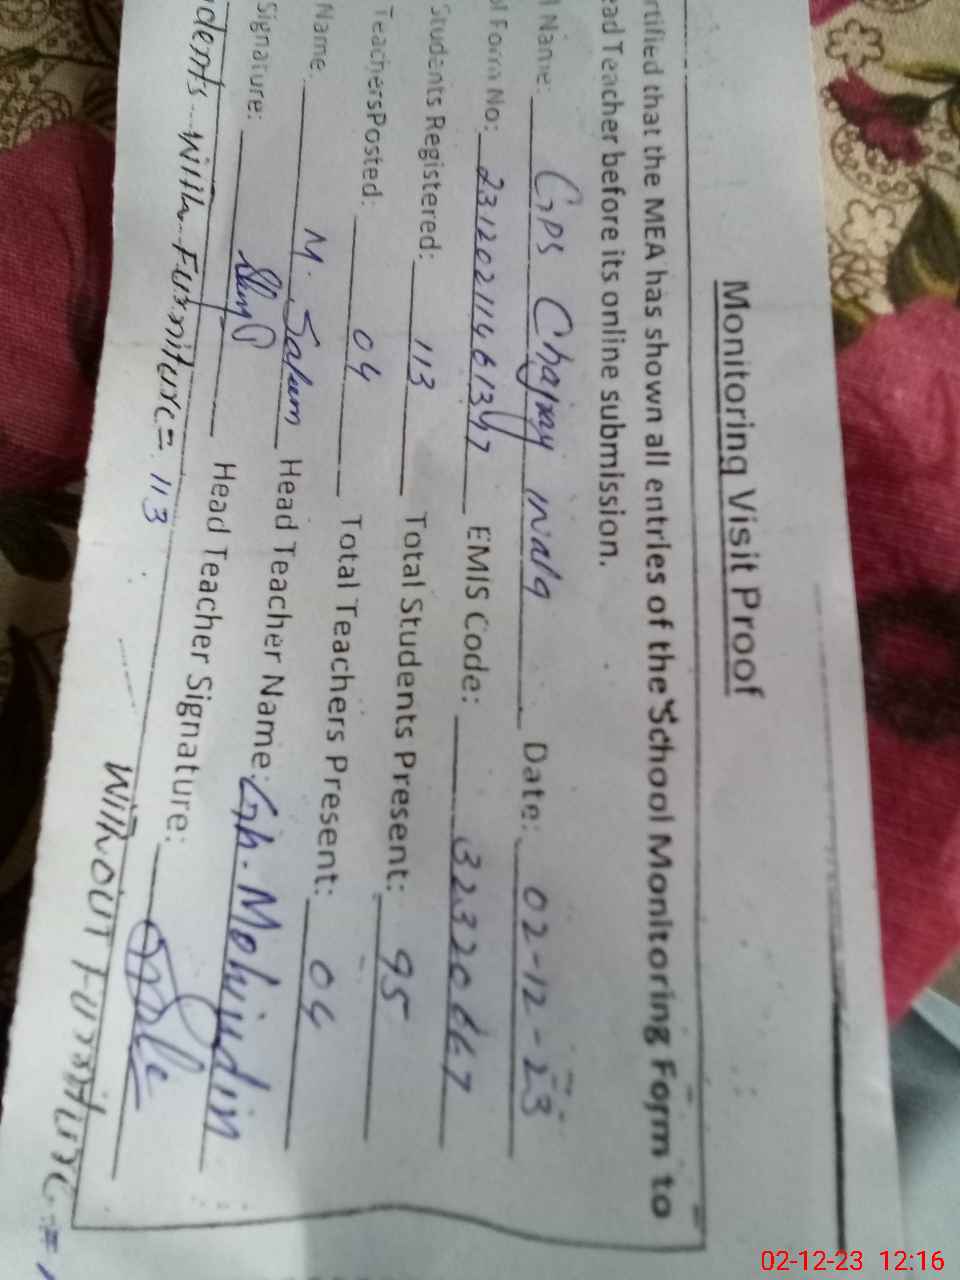 Monitoring Visit Proof
rtified that the MEA has shown all entries of the School Monitoring Form to
ead Teacher before its online submission.
l Name: GPS Chajray wala Date: 02-12-23
ol Form No: EMIS Code: 32320667
Students Registered: 113 Total Students Present: 95
TeachersPosted: 04 Total Teachers Present: 04
Name: M. Salum Head Teacher Name: Gh. Mohiudin
Signature: Head Teacher Signature:
dents With Furniture = 113
Without Furniture =
02-12-23 12:16